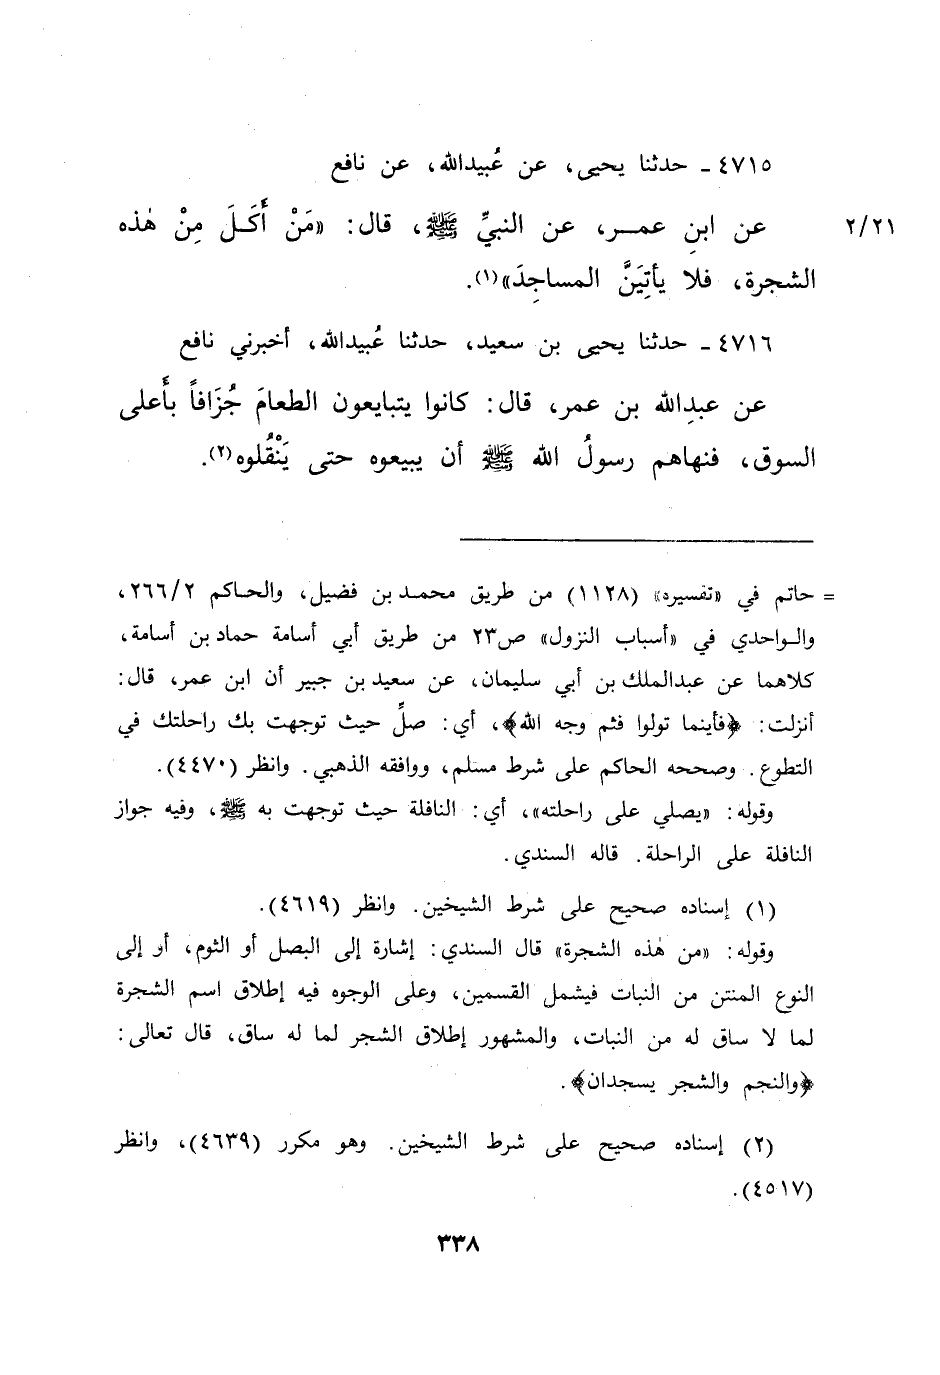 ٤٧١٥ ـ حدثنا يحيى، عن عُبيدالله، عن نافع
عن ابنِ عمـــر، عن النبيِّ ﷺ، قال: «مَنْ أَكَـلَ مِنْ هٰذه ٢/٢١
الشجرة، فلا يأتِيَنَّ المساجِدَ»(١).
٤٧١٦ ـ حدثنا يحيى بن سعيد، حدثنا عُبيدالله، أخبرني نافع
عن عبدِالله بن عمر، قال: كانوا يتبايعون الطعامَ جُزَافاً بأَعلى
السوق، فنهاهم رسولُ الله ﷺ أن يبيعوه حتى يَنْقُلوه(٢).
= حاتم في «تفسيره» (١١٢٨) من طريق محمـد بن فضيل، والحـاكم ٢٦٦/٢،
والـواحدي في «أسباب النزول» ص٢٣ من طريق أبي أسامة حماد بن أسامة،
كلاهما عن عبدالملك بن أبي سليمان، عن سعيد بن جبير أن ابن عمر، قال:
أنزلت: ﴿فأينما تولوا فثم وجه الله﴾، أي: صلِّ حيث توجهت بك راحلتك في
التطوع. وصححه الحاكم على شرط مسلم، ووافقه الذهبي. وانظر (٤٤٧٠).
وقوله: «يصلي على راحلته»، أي: النافلة حيث توجهت به ﷺ، وفيه جواز
النافلة على الراحلة. قاله السندي.
(١) إسناده صحيح على شرط الشيخين. وانظر (٤٦١٩).
وقوله: «من هٰذه الشجرة» قال السندي: إشارة إلى البصل أو الثوم، أو إلى
النوع المنتن من النبات فيشمل القسمين، وعلى الوجوه فيه إطلاق اسم الشجرة
لما لا ساق له من النبات، والمشهور إطلاق الشجر لما له ساق، قال تعالى:
﴿والنجم والشجر يسجدان﴾.
(٢) إسناده صحيح على شرط الشيخين. وهو مكرر (٤٦٣٩)، وانظر
(٤٥١٧).
٣٣٨